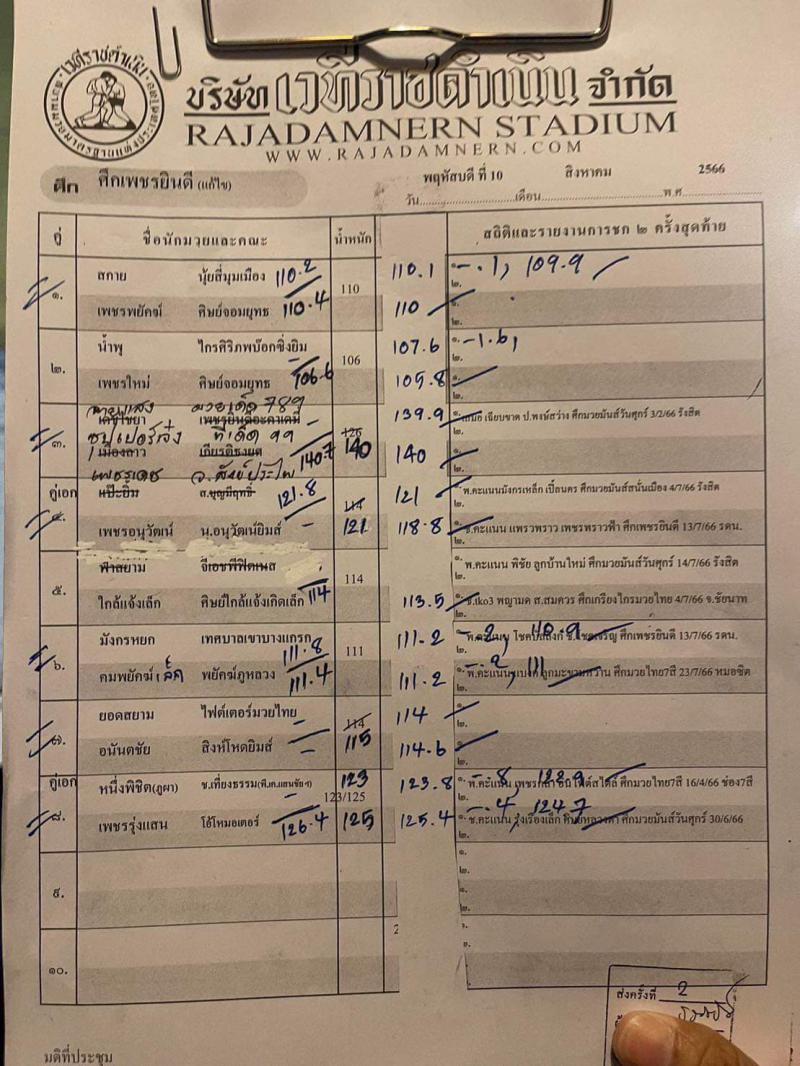 เวทีราชดำเนิน
บริษัท เวทีราชดำเนิน จำกัด
RAJADAMNERN STADIUM
WWW.RAJADAMNERN.COM
ศึก ศึกเพชรยินดี (แก้ไข)
พฤหัสบดี ที่ 10 สิงหาคม 2566
วัน เดือน พ.ศ.
คู่ ชื่อนักมวยและคณะ น้ำหนัก สถิติและรายงานการชก ๒ ครั้งสุดท้าย
๑. สกาย นุ้ยสี่มุมเมือง 110.2 110 110.1 ๑. -.1, 109.9
๒.
เพชรพยัคฆ์ ศิษย์จอมยุทธ 110.4 110 ๑.
๒.
๒. น้ำพุ ไกรศิริภพบ๊อกซิ่งยิม 106 107.6 ๑. -1.6,
๒.
เพชรใหม่ ศิษย์จอมยุทธ 106.6 105.8 ๑.
๒.
สายแสง มวยเด็ด 789
๓. เพชรยินดีอะคาเดมี่ 126 139.9 ๑. เฉียบขาด ป.พงษ์สว่าง ศึกมวยมันส์วันศุกร์ 3/2/66 รังสิต
๒.
ซุปเปอร์เจ๋ง ทีเด็ด 99
เมืองลาว เกียรติธงยศ 140.7 140 140 ๑.
๒.
เพชรเดช
คู่เอก ส.บุญมีฤทธิ์ 121.8 114 121 ๑. พ.คะแนนมังกรเหล็ก เปี้ลนคร ศึกมวยมันส์สนั่นเมือง 4/7/66 รังสิต
๒.
๔. เพชรอนุวัฒน์ น.อนุวัฒน์ยิมส์ - 121 118.8 ๑. ช.คะแนน แพรวพราว เพชรพราวฟ้า ศึกเพชรยินดี 13/7/66 รดน.
๒.
๕. ฟ้าสยาม จีเอชพีฟิตเนส 114 ๑. พ.คะแนน พิชัย ลูกบ้านใหม่ ศึกมวยมันส์วันศุกร์ 14/7/66 รังสิต
๒.
ใกล้แจ้งเล็ก ศิษย์ใกล้แจ้งเกิดเล็ก 114 113.5 ๑. ช.tko3 พญามด ส.สมควร ศึกเกรียงไกรมวยไทย 4/7/66 จ.ชัยนาท
๒.
๖. มังกรหยก เทศบาลเขาบางแกรก 111.8 111 111.2 ๑. ศึกเพชรยินดี 13/7/66 รดน.
๒.
คมพยัคฆ์ เล็ก พยัคฆ์ภูหลวง 111.4 111.2 ๑. พ.คะแนน -.2, 111 ลูกมะขามหวาน ศึกมวยไทย7สี 23/7/66 หมอชิต
๒.
๗. ยอดสยาม ไฟต์เตอร์มวยไทย - 114 114 ๑.
๒.
อนันตชัย สิงห์โหดยิมส์ - 115 114.6 ๑.
๒.
คู่เอก หนึ่งพิชิต(ภูผา) ช.เที่ยงธรรม 123 123/125 123.8 ๑. พ.คะแนน -.8, 122.9 ศึกมวยไทย7สี 16/4/66 ช่อง7สี
๒.
๘. เพชรรุ่งแสน โอ้โหมอเตอร์ 126.4 125 125.4 ๑. ช.คะแนน -.4, 124.7 รุ่งเรืองเล็ก ศึกมวยมันส์วันศุกร์ 30/6/66
๒.
๙. ๑.
๒.
๑.
๒.
๑๐. 2 ๑.
๒.
ส่งครั้งที่ 2
มติที่ประชุม